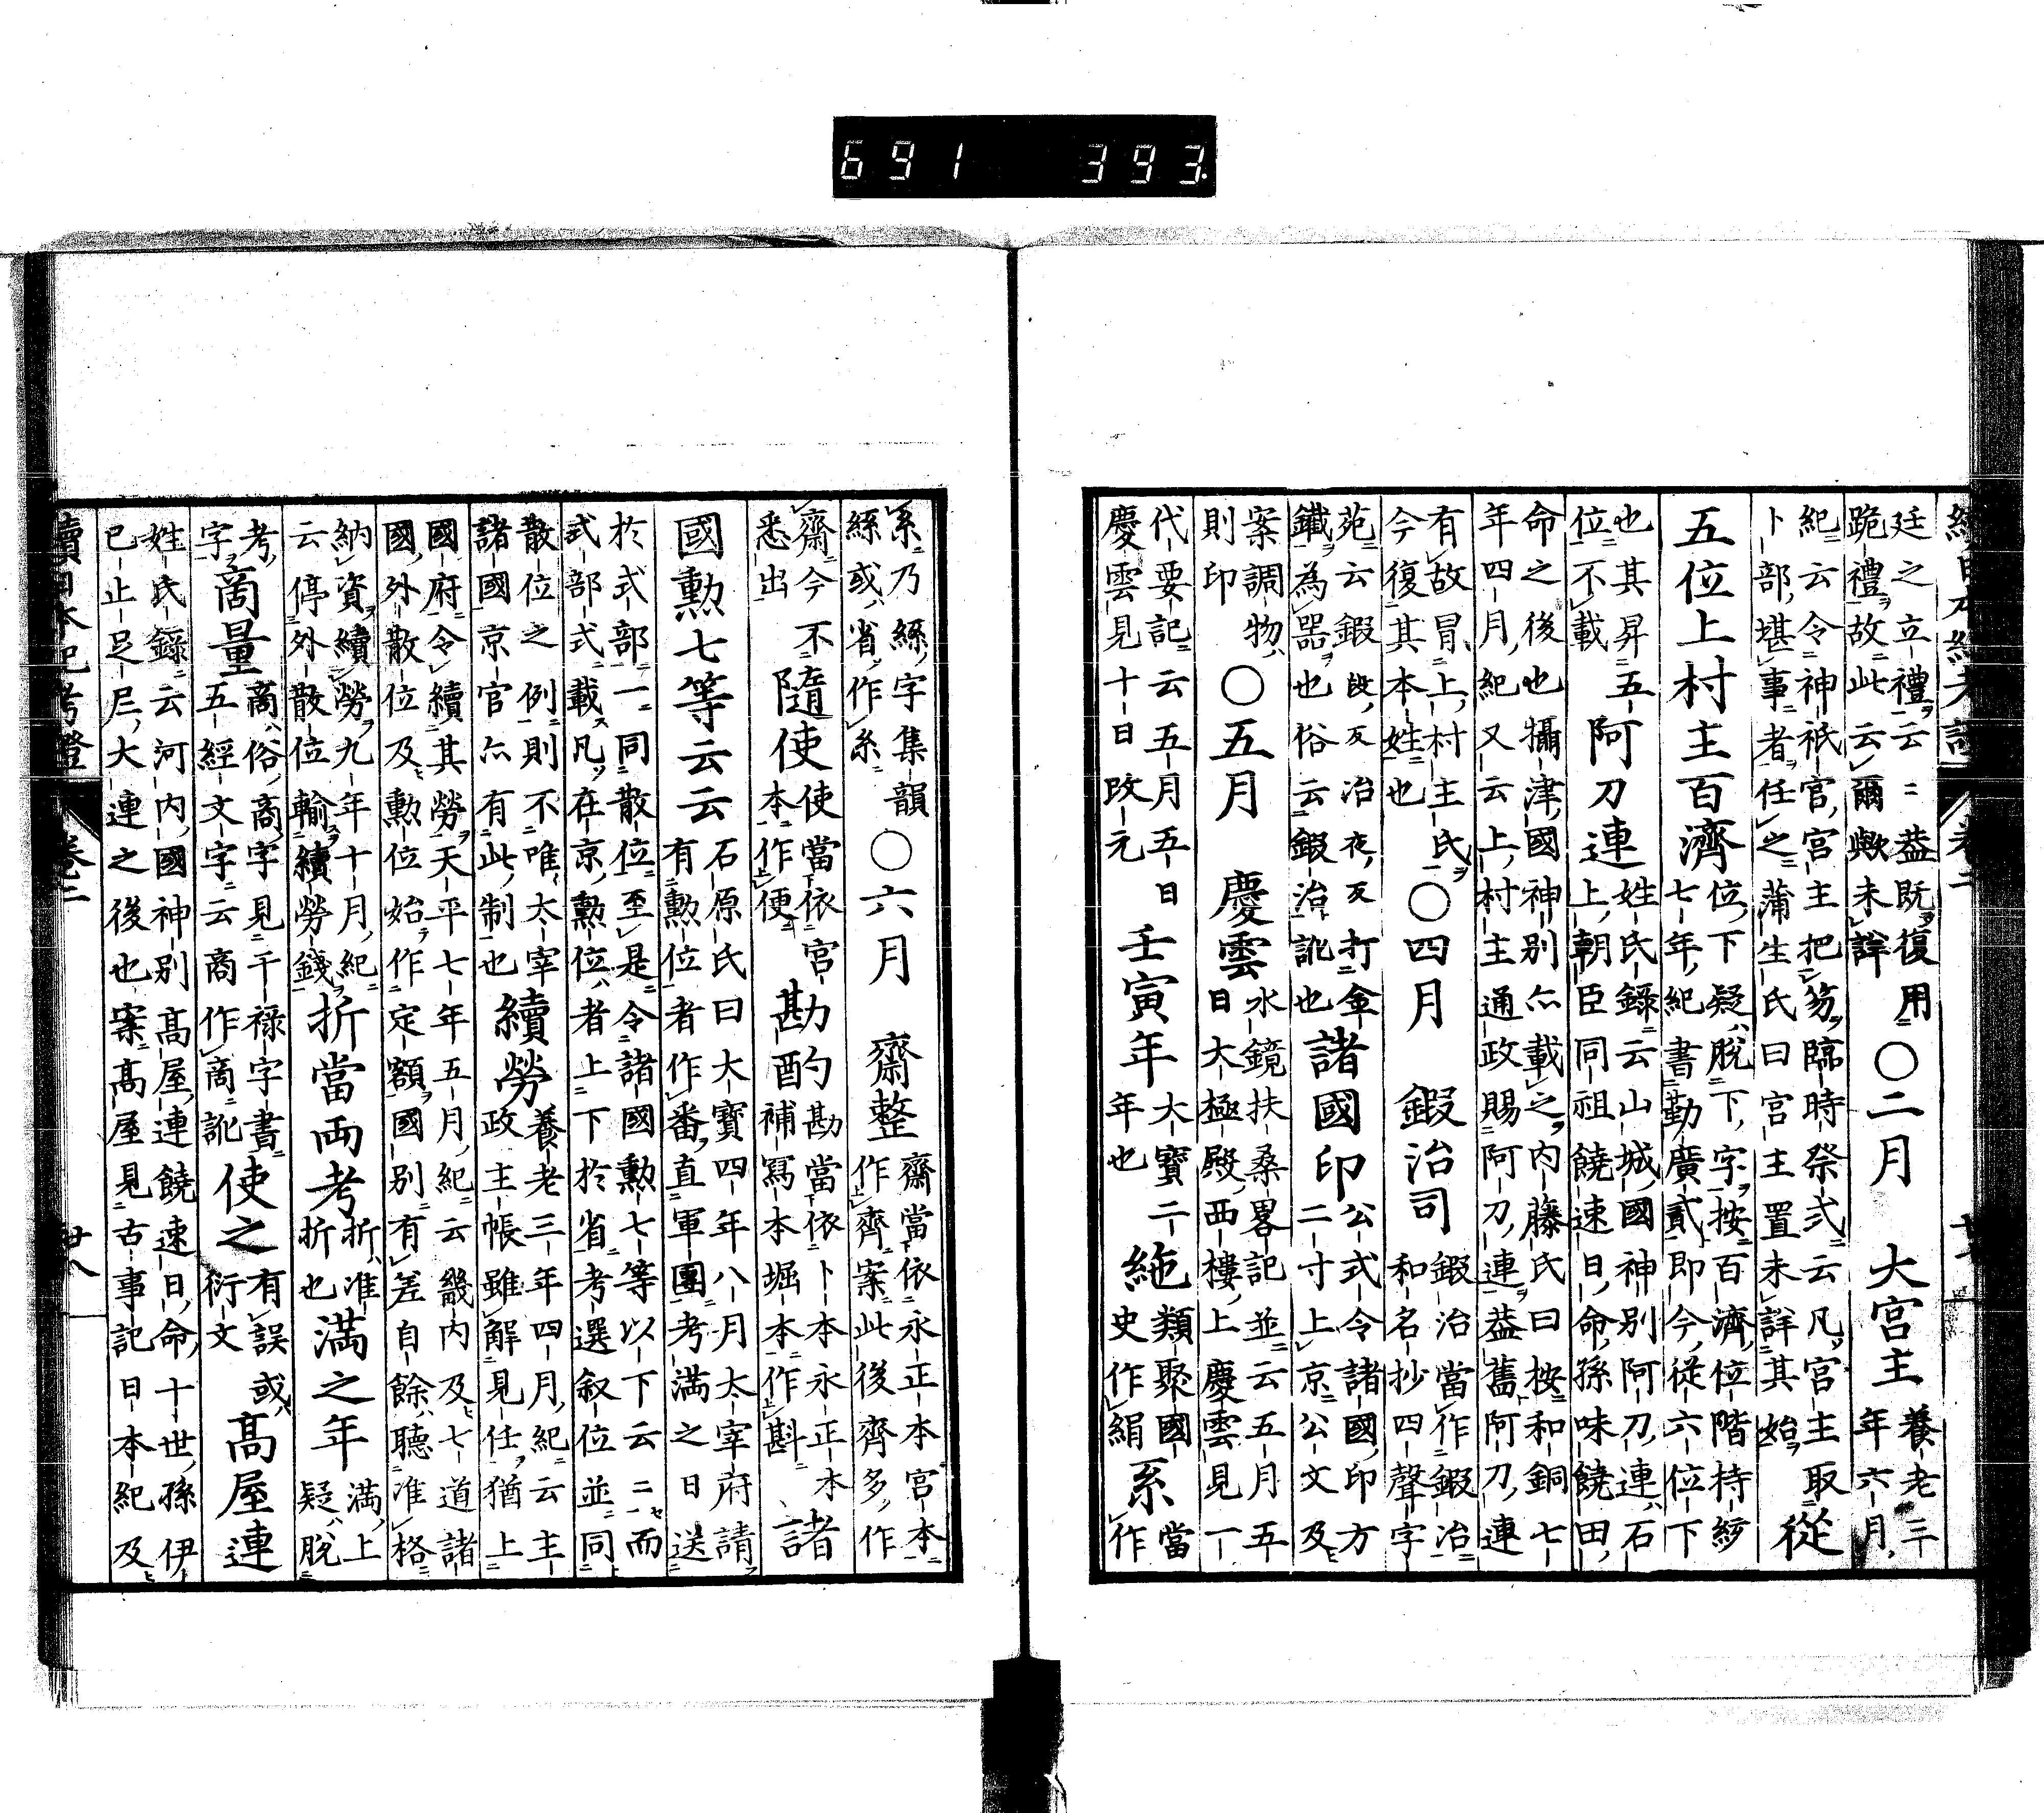 691 393
續日本紀考證 卷二
廷之立禮云云蓋既復用 ○二月 大宮主 養老三
跪禮故此云爾歟未詳 年六月
紀云令神祇官宮主把笏臨時祭式云凡宮主取
卜部堪事者任之蒲生氏曰宮主置未詳其始 從
五位上村主百濟 位下疑脫下字按百濟位階持統
七年紀書勤廣貳即今從六位下
也其昇五
位不載 阿刀連 姓氏錄云山城國神別阿刀連石
上朝臣同祖饒速日命孫味饒田
命之後也攝津國神別亦載之內藤氏曰按和銅七
年四月紀又云上村主通政賜阿刀連蓋舊阿刀連
有故冒上村主氏
今復其本姓也 ○四月 鍜治司 鍜治當作鍜冶
和名抄四聲字
苑云鍜㱾反冶夜反打金
鐵為器也俗云鍜治訛也 諸國印 公式令諸國印方
二寸上京公文及
案調物
則印 ○五月 慶雲 水鏡扶桑畧記並云五月五
日大極殿西樓上慶雲見一
代要記云五月五日
慶雲見十日改元 壬寅年 大寶二
年也 絁 類聚國
史作絹 系 當
作
系乃絲字集韻
絲或省作系 ○六月 齋整 齋當依永正本宮本
作齊案此後齊多作
齋今不
悉出 隨使 使當依宮
本作便 勘酌 勘當依卜本永正本
補冩本堀本作斟 諸
國勲七等云云 石原氏曰大寶四年八月太宰府請
有勲位者作番直軍團考滿之日送
於式部一同散位至是令諸國勲七等以下云云而
式部式載凡在京勲位者上下於省考選叙位並同
散位之例則不唯太宰
諸國京官亦有此制也 續勞 養老三年四月紀云主
政主帳雖解見任猶上
國府令續其勞天平七年五月紀云畿內及七道諸
國外散位及勲位始作定額國別有差自餘聽准格
納資續勞九年十月紀
云停外散位輸續勞錢 折當兩考 折准
折也 滿之年 滿上
疑脫
考
字 啇量 商俗啇字見干祿字書
五經文字云商作啇訛 使之 有誤或
衍文 髙屋連
姓氏錄云河內國神別髙屋連饒速日命十世孫伊
己止足尼大連之後也案髙屋見古事記日本紀及
續日本紀考證 卷二 廿八